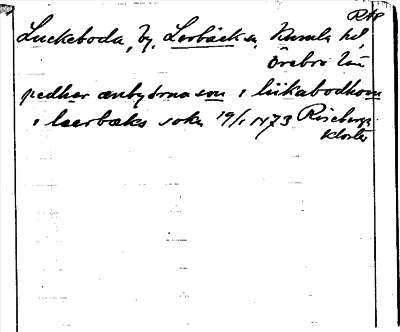 RAP
Luckeboda, by, Lerbäck sn, Kumla hd,
Örebro län
pedher ænbyörnason i lukabodhom
i leerbæks sokn 19/1 1473 Riseberga
kloster